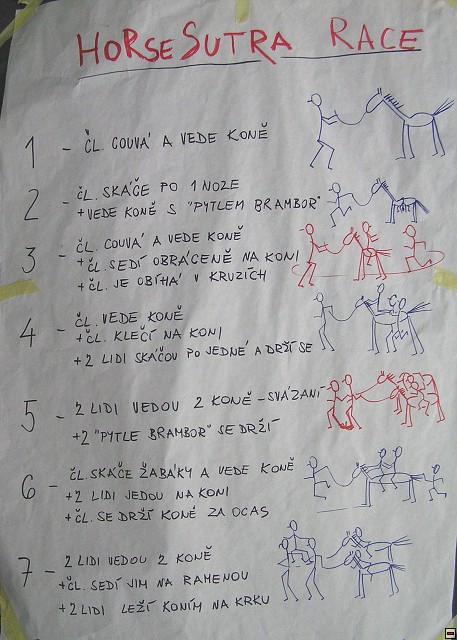 HORSESUTRA RACE
1 - ČL. COUVÁ A VEDE KONĚ
2 - ČL. SKÁČE PO 1 NOZE
+ VEDE KONĚ S "PYTLEM BRAMBOR"
3 - ČL. COUVÁ A VEDE KONĚ
+ ČL. SEDÍ OBRÁCENĚ NA KONI
+ ČL. JE OBÍHÁ V KRUZÍCH
4 - ČL. VEDE KONĚ
+ ČL. KLEČÍ NA KONI
+ 2 LIDI SKÁČOU PO JEDNÉ A DRŽÍ SE
5 - 2 LIDI VEDOU 2 KONĚ - SVÁZANÍ
+ 2 "PYTLE BRAMBOR" SE DRŽÍ
6 - ČL. SKÁČE ŽABÁKY A VEDE KONĚ
+ 2 LIDI JEDOU NA KONI
+ ČL. SE DRŽÍ KONĚ ZA OCAS
7 - 2 LIDI VEDOU 2 KONĚ
+ ČL. SEDÍ JIM NA RAMENOU
+ 2 LIDI LEŽÍ KONÍM NA KRKU